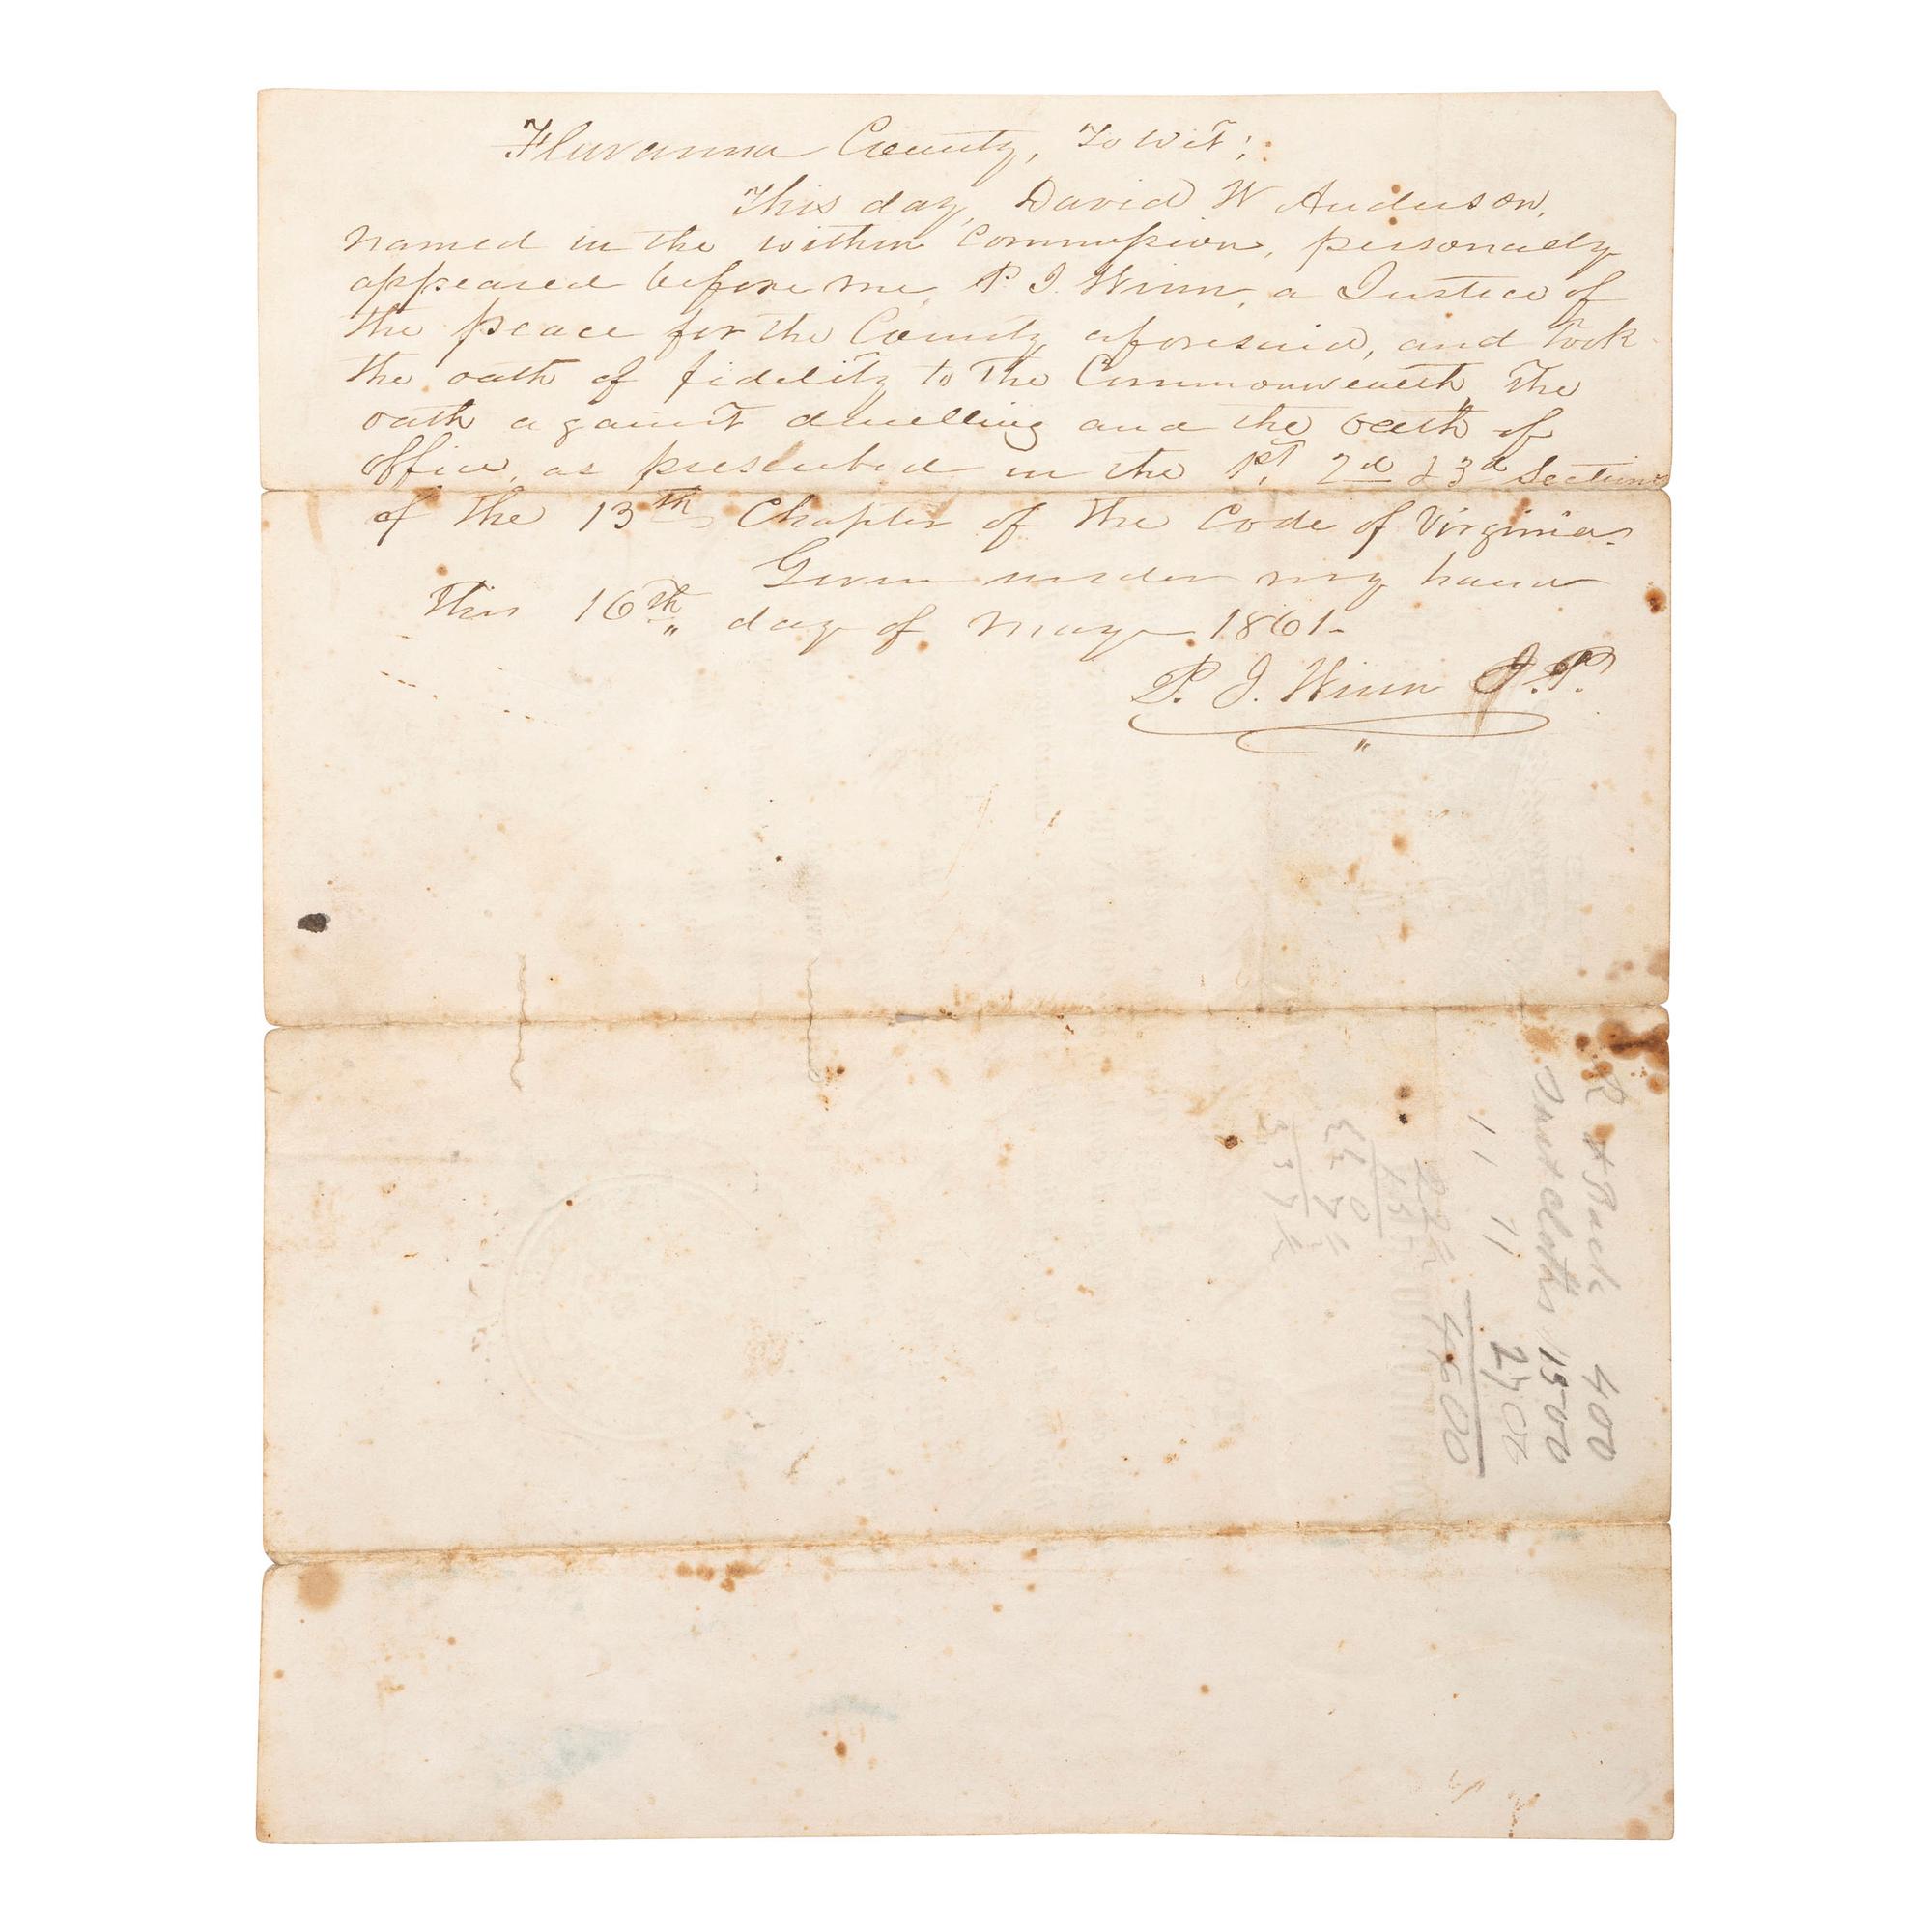 Fluvanna County, To Wit;
This day, David W Anderson,
named in the within Commission, personally
appeared before me, P. J. Winn, a Justice of
the peace for the County aforesaid, and took
the oath of fidelity to the Commonwealth, the
oath against duelling and the oath of
office, as prescribed in the 1st, 2nd & 3d Sections
of the 13th Chapter of the Code of Virginia.
Given under my hand
this 16th day of May 1861.
P. J. Winn J.P.
400
cloths 1500
11 11 2700
4600